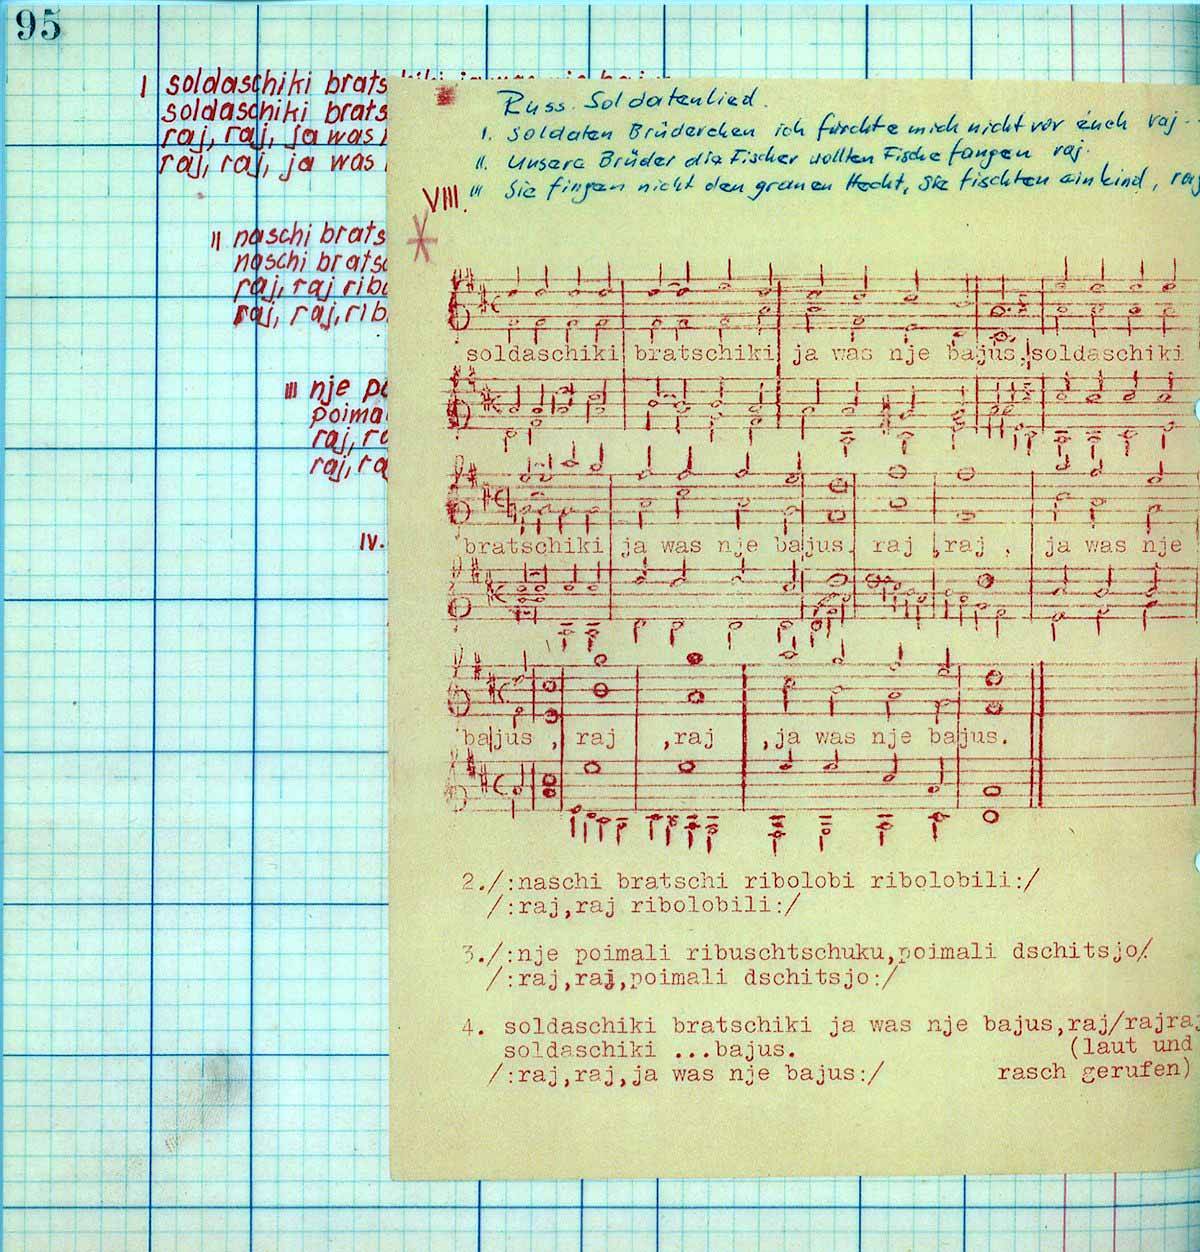 95
I soldaschiki brats
soldaschiki brats
raj, raj, ja was
raj, raj, ja was
II naschi brats
naschi bratsc
raj, raj ribo
raj, raj, rib
III nje po
poima
raj, ra
raj, ra
IV.
Russ. Soldatenlied.
I. Soldaten Brüderchen ich fürchte mich nicht vor euch raj
II. Unsere Brüder die Fischer wollten Fische fangen raj.
III Sie fingen nicht den grauen Hecht, sie fischten ein Kind, raj
VIII.
soldaschiki bratschiki ja was nje bajus, soldaschiki
bratschiki ja was nje bajus, raj , raj , ja was nje
bajus , raj ,raj ,ja was nje bajus.
2./:naschi bratschi ribolobi ribolobili:/
/:raj,raj ribolobili:/
3./:nje poimali ribuschtschuku,poimali dschitsjo/.
/:raj,raj,poimali dschitsjo:/
4. soldaschiki bratschiki ja was nje bajus,raj/rajraj
soldaschiki ...bajus. (laut und
/:raj,raj,ja was nje bajus:/ rasch gerufen)